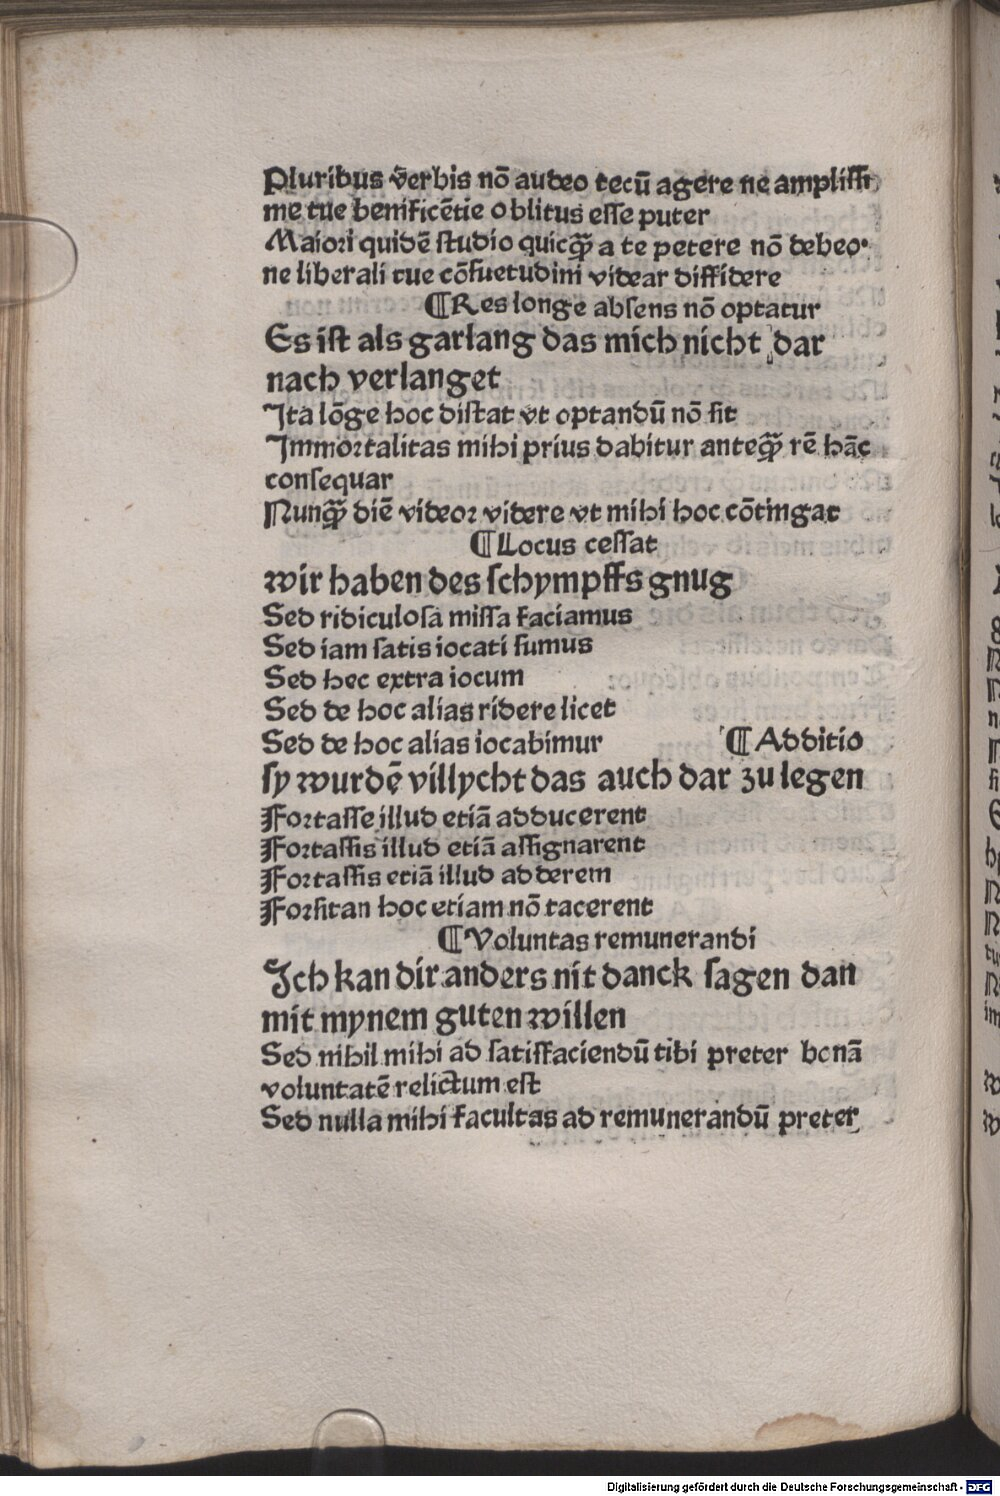 Pluribus v̄erbis nō audeo tecū agere ne ampliſſi
me tue benificētie oblitus eſſe puter
Maiori quidē ſtudio quicꝙ̄ a te petere nō debeo·
ne liberali tue cōſuetudini videar diffidere
¶Res longe abſens nō optatur
Es iſt als gar lang das mich nicht dar
nach verlanget
Ita lōge hoc diſtat vt optandū nō ſit
Immortalitas mihi prius dabitur anteꝙ̄ rē hāc
conſequar
Nunꝙ̄ diē videor videre vt mihi hoc cōtingat
¶Locus ceſſat
wir haben des ſchympffs gnug
Sed ridiculoſa miſſa faciamus
Sed iam ſatis iocati ſumus
Sed hec extra iocum
Sed de hoc alias ridere licet
Sed de hoc alias iocabimur ¶Additio
ſy wurdē villycht das auch dar zu legen
Fortaſſe illud etiā adducerent
Fortaſſis illud etiā aſſignarent
Fortaſſis etiā illud adderem
Forſitan hoc etiam nō tacerent
¶Voluntas remunerandi
Ich kan dir anders nit danck ſagen dan
mit mynem guten willen
Sed nihil mihi ad ſatiſfaciendū tibi preter bonā
voluntatē relictum eſt
Sed nulla mihi facultas ad remunerandū preter
Digitalisierung gefördert durch die Deutsche Forschungsgemeinschaft - DFG